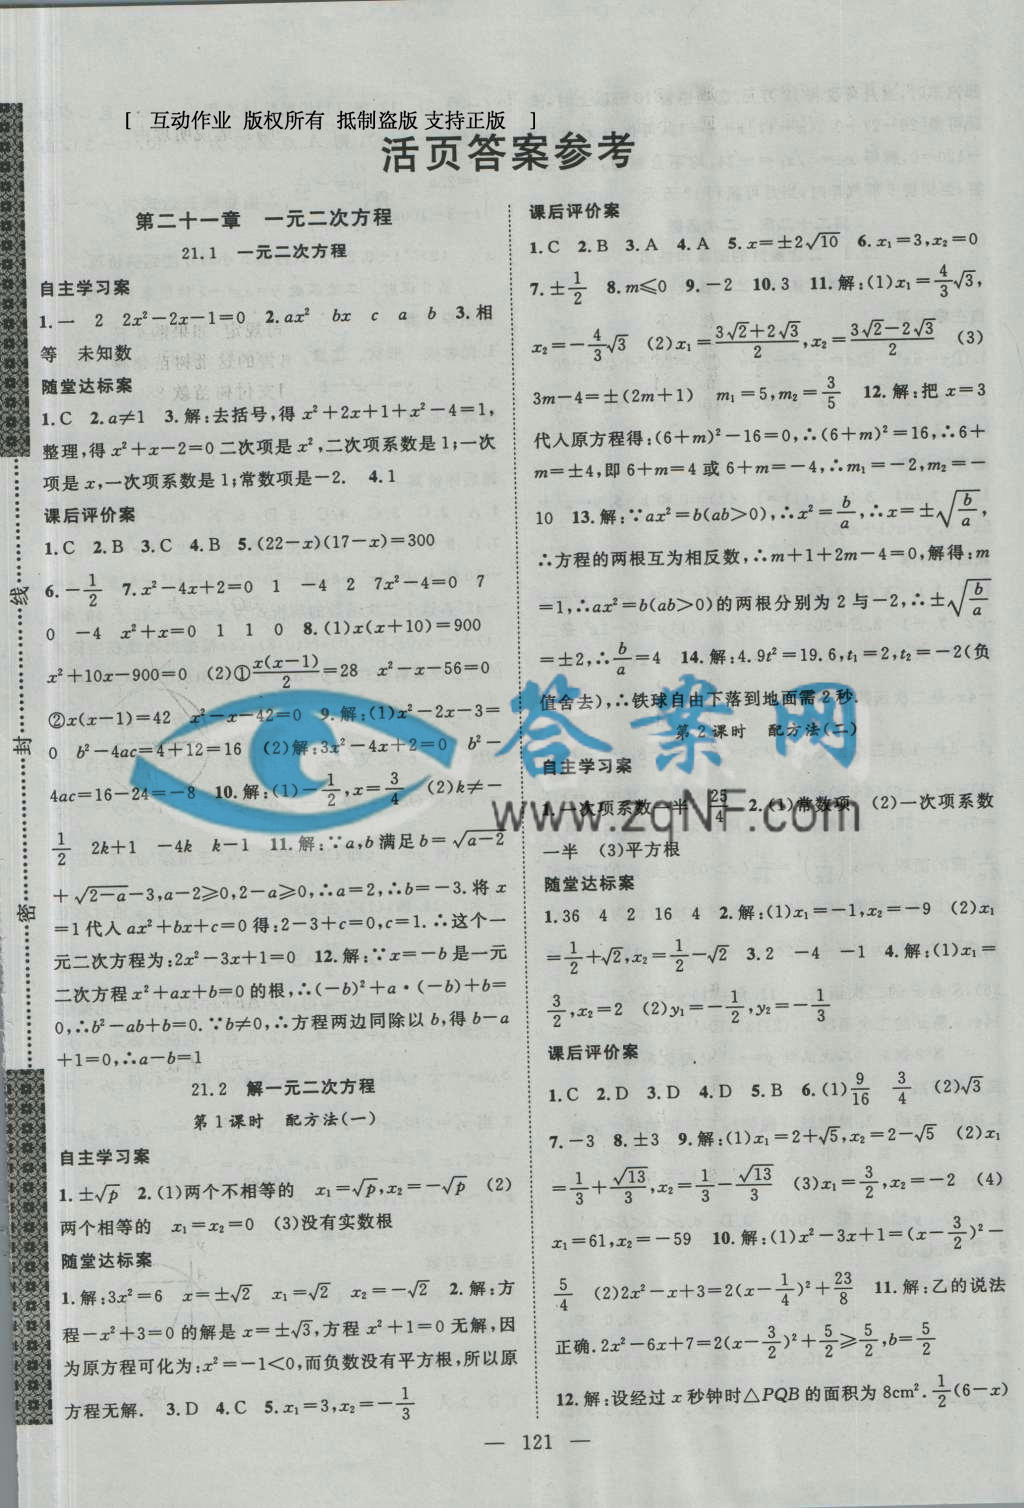 [ 互动作业 版权所有 抵制盗版 支持正版 ]
活页答案参考
第二十一章 一元二次方程
21.1 一元二次方程
自主学习案
1.一 2 2x²-2x-1=0 2.ax² bx c a b 3.相
等 未知数
随堂达标案
1.C 2.a≠1 3.解:去括号,得 x²+2x+1+x²-4=1,
整理,得 x²+x-2=0 二次项是 x²,二次项系数是 1;一次
项是 x,一次项系数是 1;常数项是-2. 4.1
课后评价案
1.C 2.B 3.C 4.B 5.(22-x)(17-x)=300
6.-1/2 7.x²-4x+2=0 1 -4 2 7x²-4=0 7
0 -4 x²+x=0 1 1 0 8.(1)x(x+10)=900
x²+10x-900=0 (2)①x(x-1)/2=28 x²-x-56=0
②x(x-1)=42 x²-x-42=0 9.解:(1)x²-2x-3=
0 b²-4ac=4+12=16 (2)解:3x²-4x+2=0 b²-
4ac=16-24=-8 10.解:(1)-1/2,x=3/4 (2)k≠-
1/2 2k+1 -4k k-1 11.解:∵a,b满足 b=√(a-2)
+√(2-a)-3,a-2≥0,2-a≥0,∴a=2,∴b=-3.将 x
=1代人 ax²+bx+c=0 得:2-3+c=0,c=1.∴这个一
元二次方程为:2x²-3x+1=0 12.解:∵x=-b 是一元
二次方程 x²+ax+b=0 的根,∴(-b)²+a·(-b)+b=
0,∴b²-ab+b=0.∵b≠0,∴方程两边同除以 b,得 b-a
+1=0,∴a-b=1
21.2 解一元二次方程
第1课时 配方法(一)
自主学习案
1.±√p 2.(1)两个不相等的 x₁=√p,x₂=-√p (2)
两个相等的 x₁=x₂=0 (3)没有实数根
随堂达标案
1.解:3x²=6 x=±√2 x₁=√2 x₂=-√2 2.解:方
程-x²+3=0 的解是 x=±√3,方程 x²+1=0 无解,因
为原方程可化为:x²=-1<0,而负数没有平方根,所以原
方程无解. 3.D 4.C 5.x₁=3,x₂=-1/3
课后评价案
1.C 2.B 3.A 4.A 5.x=±2√10 6.x₁=3,x₂=0
7.±1/2 8.m≤0 9.-2 10.3 11.解:(1)x₁=4/3√3,
x₂=-4/3√3 (2)x₁=(3√2+2√3)/2,x₂=(3√2-2√3)/2 (3)
3m-4=±(2m+1) m₁=5,m₂=3/5 12.解:把 x=3
代人原方程得:(6+m)²-16=0,∴(6+m)²=16,∴6+
m=±4,即 6+m=4 或 6+m=-4,∴m₁=-2,m₂=-
10 13.解:∵ax²=b(ab>0),∴x²=b/a,∴x=±√(b/a),
∴方程的两根互为相反数,∴m+1+2m-4=0,解得:m
=1,∴ax²=b(ab>0)的两根分别为 2 与-2,∴±√(b/a)
=±2,∴b/a=4 14.解:4.9t²=19.6,t₁=2,t₂=-2(负
值舍去),∴铁球自由下落到地面需 2 秒.
第2课时 配方法(二)
自主学习案
1.一次项系数一半 25/4 2.(1)常数项 (2)一次项系数
一半 (3)平方根
随堂达标案
1.36 4 2 16 4 2.解:(1)x₁=-1,x₂=-9 (2)x₁
=1/2+√2,x₂=1/2-√2 3.2 -4 -1 4.解:(1)x₁=
3/2,x₂=2 (2)y₁=-1/2,y₂=-1/3
课后评价案
1.C 2.D 3.D 4.D 5.B 6.(1)9/16 3/4 (2)√3
7.-3 8.±3 9.解:(1)x₁=2+√5,x₂=2-√5 (2)x₁
=1/3+√13/3,x₂=1/3-√13/3 (3)x₁=3/2,x₂=-2 (4)
x₁=61,x₂=-59 10.解:(1)x²-3x+1=(x-3/2)²-
5/4 (2)2x²-x+3=2(x-1/4)²+23/8 11.解:乙的说法
正确.2x²-6x+7=2(x-3/2)²+5/2≥5/2,b=5/2
12.解:设经过 x 秒钟时△PQB 的面积为 8cm².1/2(6-x)
— 121 —
线
封
密
答案网
www.zqNF.com